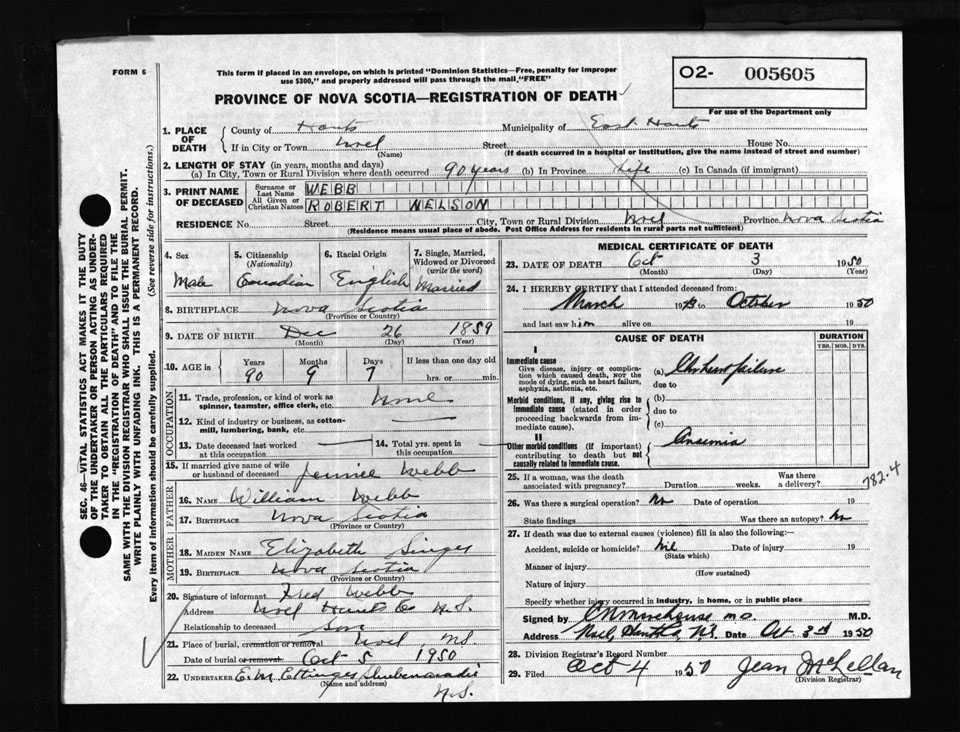 FORM 6
This form if placed in an envelope, on which is printed "Dominion Statistics—Free, penalty for improper
use $300," and properly addressed will pass through the mail, "FREE"
O2- 005605
For use of the Department only
PROVINCE OF NOVA SCOTIA—REGISTRATION OF DEATH
1. PLACE OF DEATH County of Hants Municipality of East Hants
If in City or Town Noel Street House No.
(Name) (If death occurred in a hospital or institution, give the name instead of street and number)
2. LENGTH OF STAY (in years, months and days)
(a) In City, Town or Rural Division where death occurred 90 years (b) In Province Life (c) In Canada (if immigrant)
3. PRINT NAME OF DECEASED Surname or Last Name WEBB
All Given or Christian Names ROBERT NELSON
RESIDENCE No. Street City, Town or Rural Division Noel Province Nova Scotia
(Residence means usual place of abode. Post Office Address for residents in rural parts not sufficient)
4. Sex Male
5. Citizenship (Nationality) Canadian
6. Racial Origin English
7. Single, Married, Widowed or Divorced (write the word) Married
8. BIRTHPLACE Nova Scotia
(Province or Country)
9. DATE OF BIRTH Dec 26 1859
(Month) (Day) (Year)
10. AGE in Years 90 Months 9 Days 7 If less than one day old hrs. or min.
OCCUPATION
11. Trade, profession, or kind of work as spinner, teamster, office clerk, etc. None
12. Kind of industry or business, as cotton-mill, lumbering, bank, etc.
13. Date deceased last worked at this occupation
14. Total yrs. spent in this occupation
15. If married give name of wife or husband of deceased Jennie Webb
FATHER
16. NAME William Webb
17. BIRTHPLACE Nova Scotia
(Province or Country)
MOTHER
18. MAIDEN NAME Elizabeth
19. BIRTHPLACE Nova Scotia
(Province or Country)
20. Signature of informant Fred Webb
Address Noel Hants Co N.S.
Relationship to deceased Son
21. Place of burial, cremation or removal Noel N.S.
Date of burial or removal Oct 5 1950
22. UNDERTAKER E.M. Ettinger Shubenacadie
(Name and address) N.S.
MEDICAL CERTIFICATE OF DEATH
23. DATE OF DEATH Oct 3 1950
(Month) (Day) (Year)
24. I HEREBY CERTIFY that I attended deceased from:
March 19 to October 1950
and last saw him alive on 19
CAUSE OF DEATH
DURATION
YRS. MOS. DYS.
I
Immediate cause
Give disease, injury or complication which caused death, NOT the mode of dying, such as heart failure, asphyxia, asthenia, etc.
(a) Ch heart failure
due to
Morbid conditions, if any, giving rise to immediate cause (stated in order proceeding backwards from immediate cause).
(b)
due to
(c)
II
Other morbid conditions (if important) contributing to death but not causally related to immediate cause.
Anaemia
782.4
25. If a woman, was the death associated with pregnancy? Duration weeks. Was there a delivery?
26. Was there a surgical operation? No Date of operation 19
State findings Was there an autopsy? No
27. If death was due to external causes (violence) fill in also the following:—
Accident, suicide or homicide? Nil Date of injury 19
(State which)
Manner of injury
(How sustained)
Nature of injury
Specify whether injury occurred in industry, in home, or in public place
Signed by M.D.
Address Noel, Hants Co, N.S. Date Oct 3rd 1950
28. Division Registrar's Record Number
29. Filed Oct 4 1950 Jean McLellan
(Division Registrar)
SEC. 46—VITAL STATISTICS ACT MAKES IT THE DUTY
OF THE UNDERTAKER OR PERSON ACTING AS UNDER-
TAKER TO OBTAIN ALL THE PARTICULARS REQUIRED
IN THE "REGISTRATION OF DEATH" AND TO FILE THE
SAME WITH THE DIVISION REGISTRAR WHO SHALL ISSUE THE BURIAL PERMIT.
WRITE PLAINLY WITH UNFADING INK. THIS IS A PERMANENT RECORD.
Every item of information should be carefully supplied. (See reverse side for instructions.)